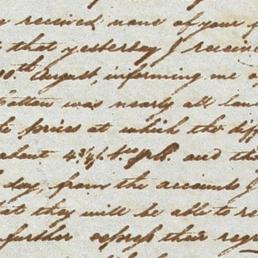 received none of your
that yesterday I receive
10th August, informing me o
Cotton was nearly all lan
prices at which the diff
about and th
day, from the accounts I
at they will be able to re
further their regr